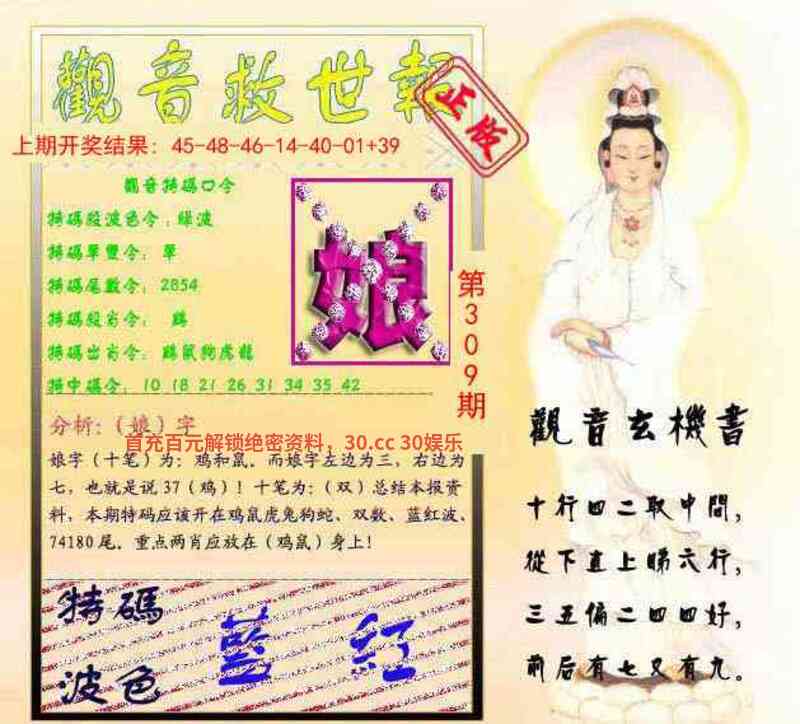 觀音救世報
正版
上期开奖结果：45-48-46-14-40-01+39
觀音特碼口令
特碼段波色令：绿波
特碼單雙令：單
特碼尾數令：2854
特碼出肖令：鷄鼠狗虎龍
特中碼令：10 18 21 26 31 34 35 42
娘
第309期
分析：（娘）字
首充百元解锁绝密资料，30.cc 30娱乐
娘字（十笔）为：鸡和鼠．而娘字左边为三，右边为
七，也就是说37（鸡）！十笔为：（双）总结本报资
料，本期特码应该开在鸡鼠虎兔狗蛇、双数、蓝紅波、
74180尾．重点两肖应放在（鸡鼠）身上！
特碼
波色
藍 紅
觀音玄機書
十行四二取中間，
從下直上睇六行，
三五偏二四四好，
前后有七又有九。